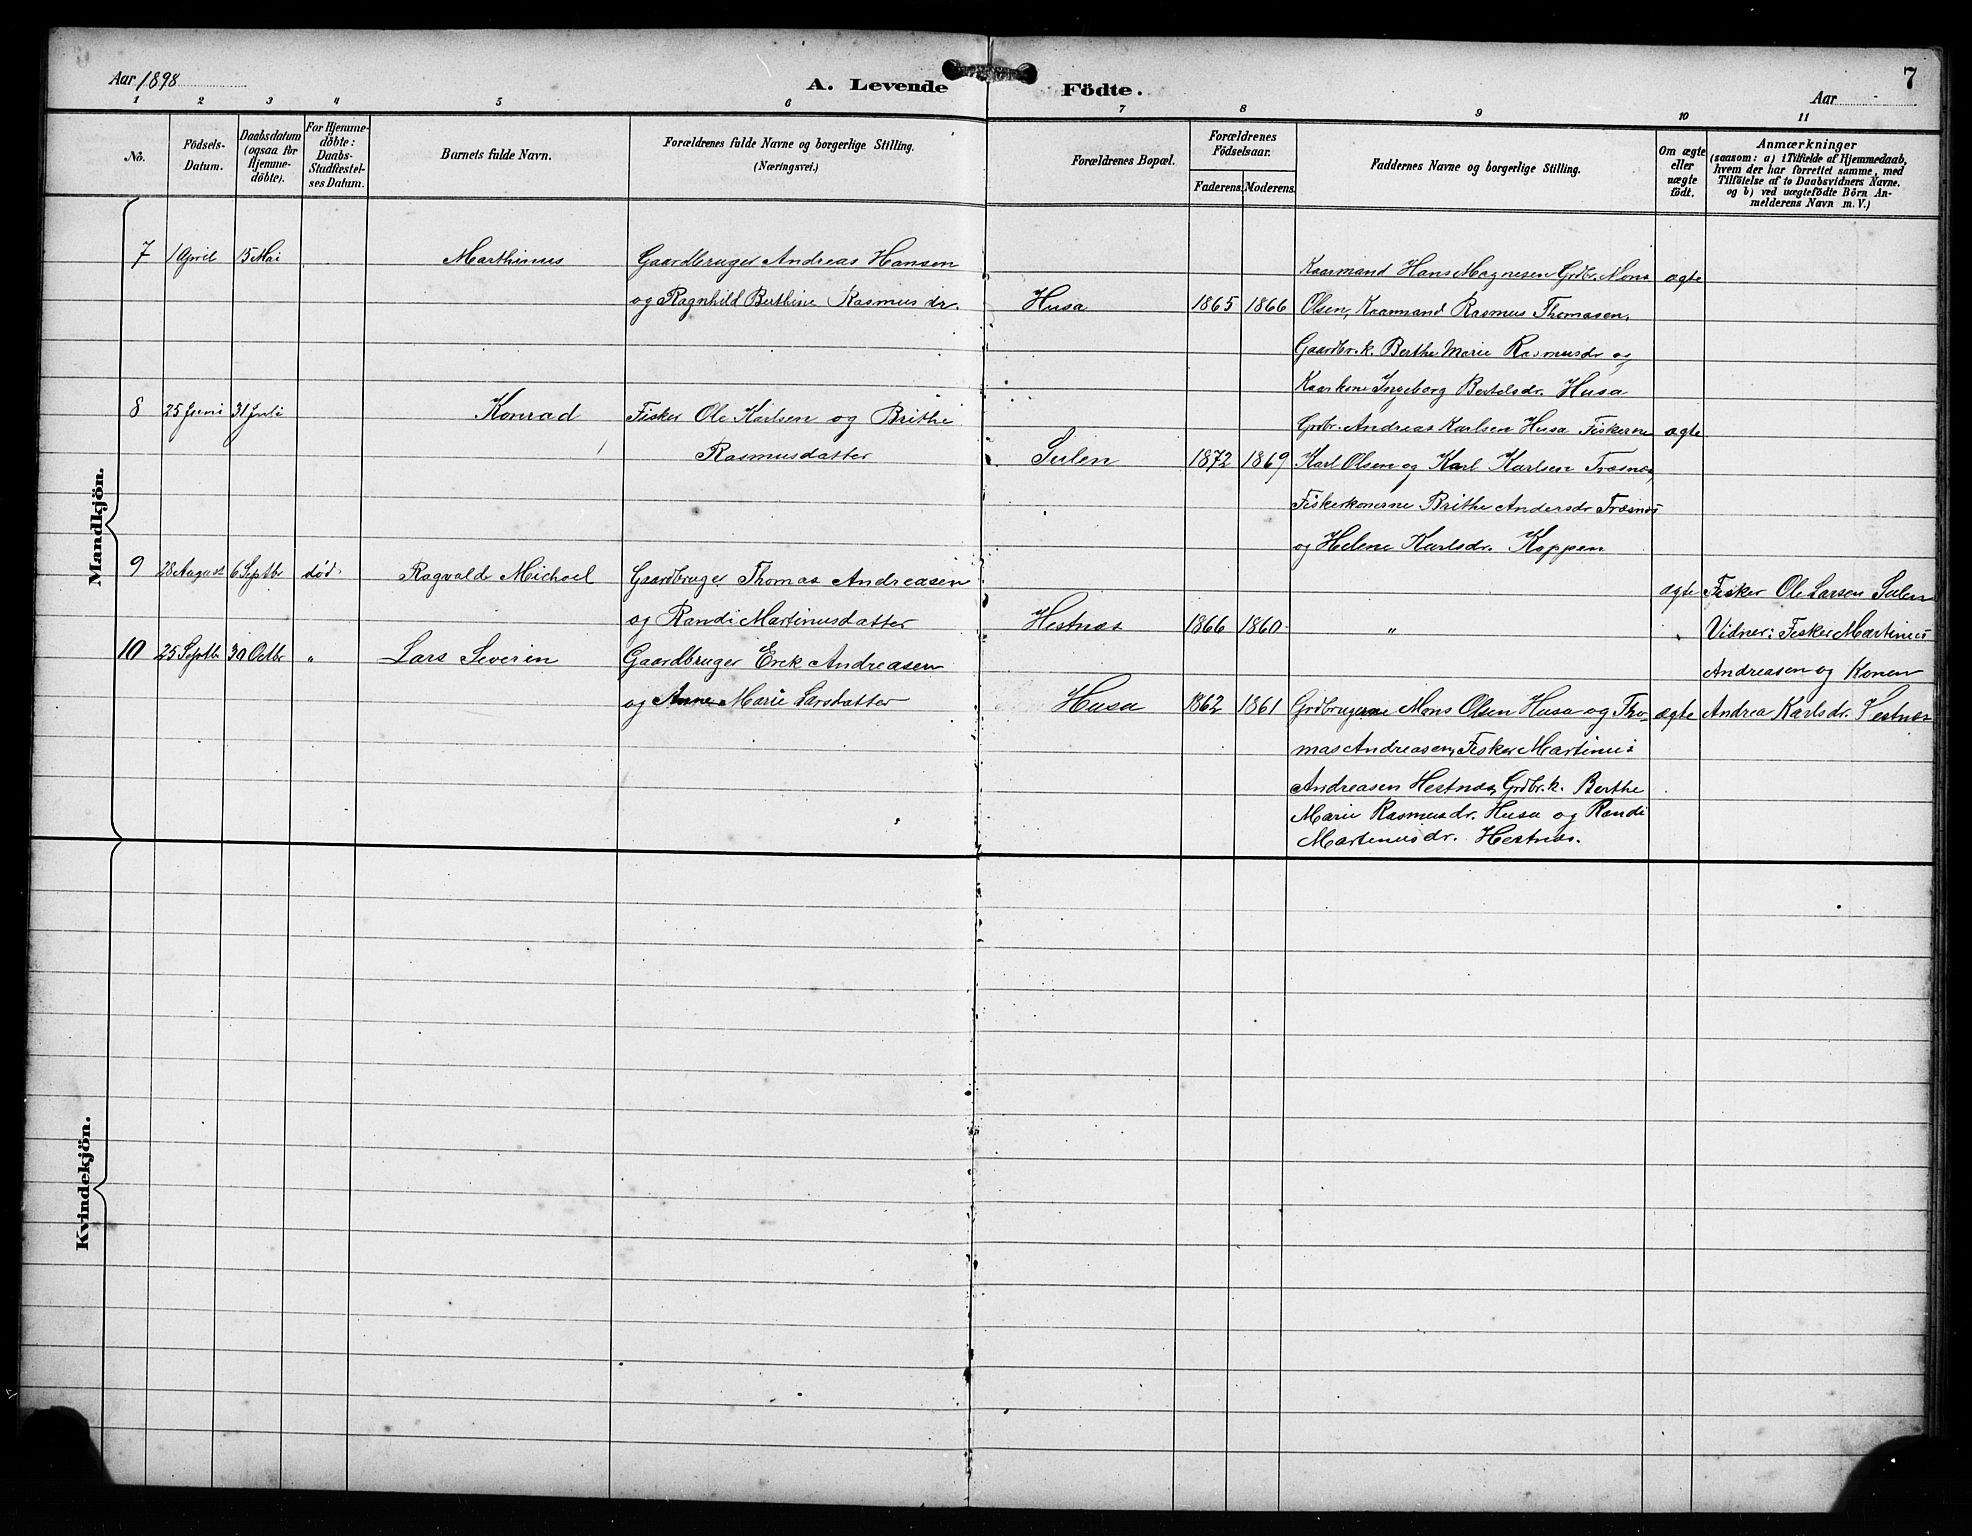 Aar 1898
A. Levende Födte.
7
Aar
1 2 3 4 5 6 7 8 9 10 11
No.
Födsels-
Datum.
Daabsdatum
(ogsaa for
Hjemme-
döbte).
For Hjemme-
döbte:
Daabs-
Stadfæstel-
ses Datum.
Barnets fulde Navn.
Forældrenes fulde Navne og borgerlige Stilling.
(Næringsvei.)
Forældrenes Bopæl.
Forældrenes
Födselsaar.
Faderens. Moderens.
Faddernes Navne og borgerlige Stilling.
Om ægte
eller
uægte
födt.
Anmærkninger
(saasom: a) i Tilfælde af Hjemmedaab,
hvem der har forrettet samme, med
Tilföielse af to Daabsvidners Navne.
og b) ved uægtefödte Börn An-
melderens Navn m. V.)
Mandkjön.
7 1 April 15 Mai Marthinus Gaardbruger Andreas Hansen
og Ragnhild Berthine Rasmusdr. Husa 1865 1866
Kaarmand Hans Magnesen Grdbr. Mons
Olsen, Kaarmand Rasmus Thomasen,
Gaardbr.k. Berthe Marie Rasmusdr og
Kaarkone Ingeborg Bertelsdr. Husa
ægte
8 25 Juni 31 Juli Konrad Fisker Ole Karlsen og Brithe
Rasmusdatter Sulen 1872 1869
Grdbr. Andreas Karlsen Husa Fiskerne
Karl Olsen og Karl Karlsen Træsnæs,
Fiskerkonerne Brithe Andersdr Træsnæs
og Helene Karlsdr. Koppen
ægte
9 28 August 6 Septbr død Ragvald Michael Gaardbruger Thomas Andreasen
og Randi Martinusdatter Hestnæs 1866 1860 "
ægte
Fisker Ole Larsen Sulen
Vidner: Fisker Martinus
Andreasen og Konen
Andrea Karlsdr. Hestnæs
10 25 Septbr 30 Octbr " Lars Severin Gaardbruger Erek Andreasen
og Anne Marie Larsdatter Husa 1862 1861
Grdbrugerne Mons Olsen Husa og Tho-
mas Andreasen, Fisker Martinus
Andreasen Hestnæs, Grdbr.k. Berthe
Marie Rasmusdr. Husa og Randi
Martinusdr. Hestnæs.
ægte
Kvindekjön.